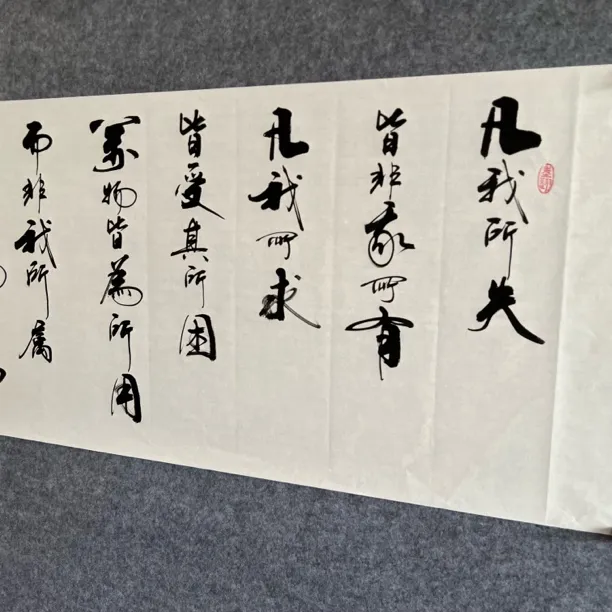 凡我所失
皆非我所有
凡我所求
皆受其所困
万物皆为所用
而非我所属